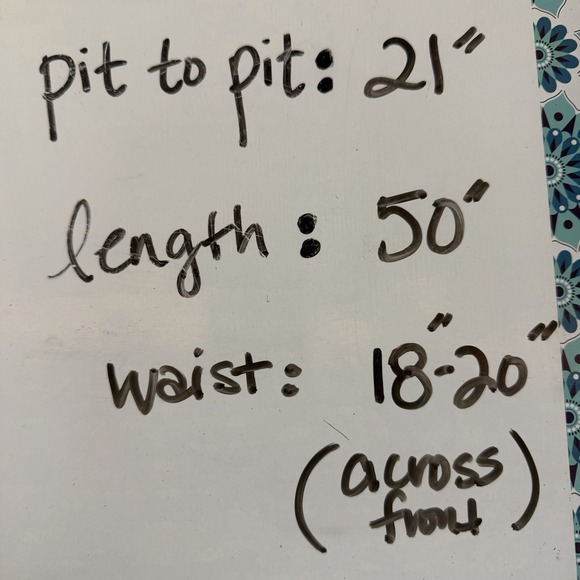 pit to pit: 21"
length: 50"
waist: 18"-20"
(across
front)